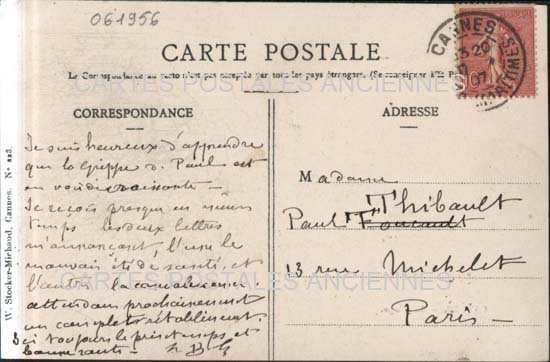 061956
CARTE POSTALE
La Correspondance au recto n'est pas acceptée par tous les pays étrangers. (Se renseigner à la P
CARTES POSTALES ANCIENNES
CORRESPONDANCE
ADRESSE
CANNES
20
07
10
MARITIMES
W. Stocker-Michaud, Cannes. N°
Je suis heureux d'apprendre
que la Grippe d. Paul est
en voie
Je reçois presque en même
temps les deux lettres
m'annonçant, l'une le
mauvais état de santé, et
l'autre la convalescence.
attendant prochainement
un complet rétablissement.
Ici toujours le printemps et
Madame
Paul Thibault
Foucault
13 rue Michelet
Paris
CARTES POSTALES ANCIENNES